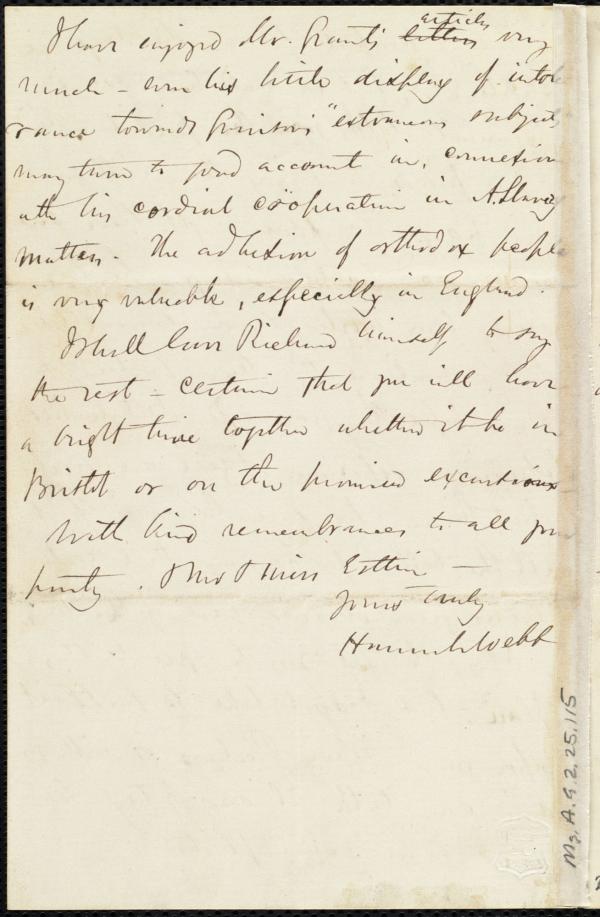 articles
I have enjoyed Mr. Grant's letters very
much - even his little display of intole
rance towards Garrison's "extraneous subjects
may turn to good account in, connexion
with his cordial coöperation in A. Slavery
matters - The adhesion of orthodox people
is very valuable, especially in England.
I shall leave Richard himself, to say
the rest - certain that you will have
a bright time together whether it be in
Bristol or on the promised excursions
With kind remembrances to all your
party. & Miss Estlin -
Yours truly
Hannah Webb
Ms. A. 9. 2. 25. 115